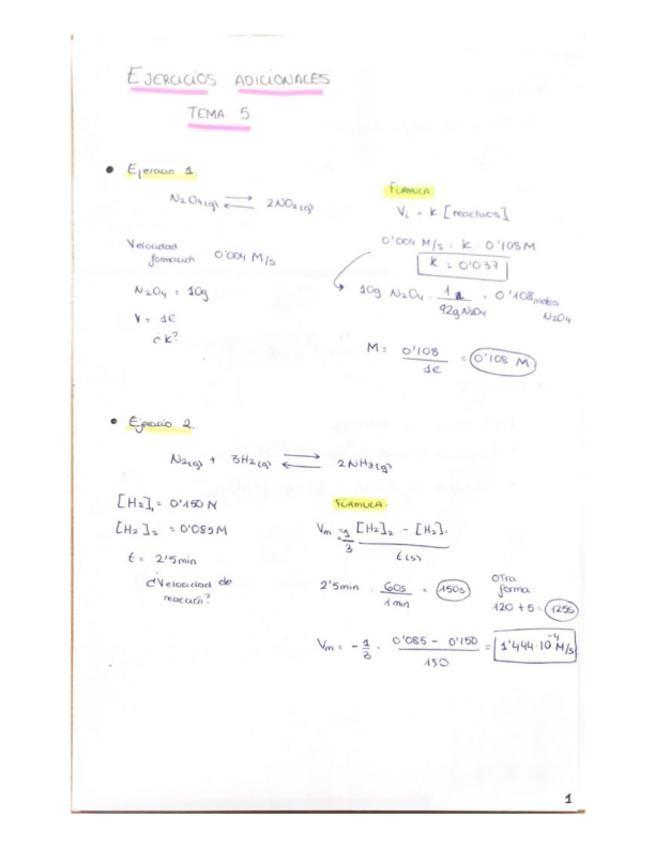 EJERCICIOS ADICIONALES
TEMA 5
• Ejercicio 1
N2O4(g) ⇌ 2NO2(g)
Velocidad
formación 0'004 M/s
N2O4 = 10g
V = 1ℓ
¿k?
FÓRMULA
Vi = k [reactivos]
0'004 M/s = k · 0'108M
k = 0'037
10g N2O4 · 1 / 92g N2O4 = 0'108 moles N2O4
M = 0'108 / 1ℓ = 0'108 M
• Ejercicio 2.
N2(g) + 3H2(g) ⇌ 2NH3(g)
[H2]1 = 0'150 M
[H2]2 = 0'085M
t = 2'5min
¿Velocidad de
reacción?
FÓRMULA.
Vm = -1/3 [H2]2 - [H2]1 / t(s)
2'5min · 60s / 1min = 150s
Otra
forma:
120 + 5 = 125s
Vm = - 1/3 · 0'085 - 0'150 / 150 = 1'444·10^-4 M/s
1